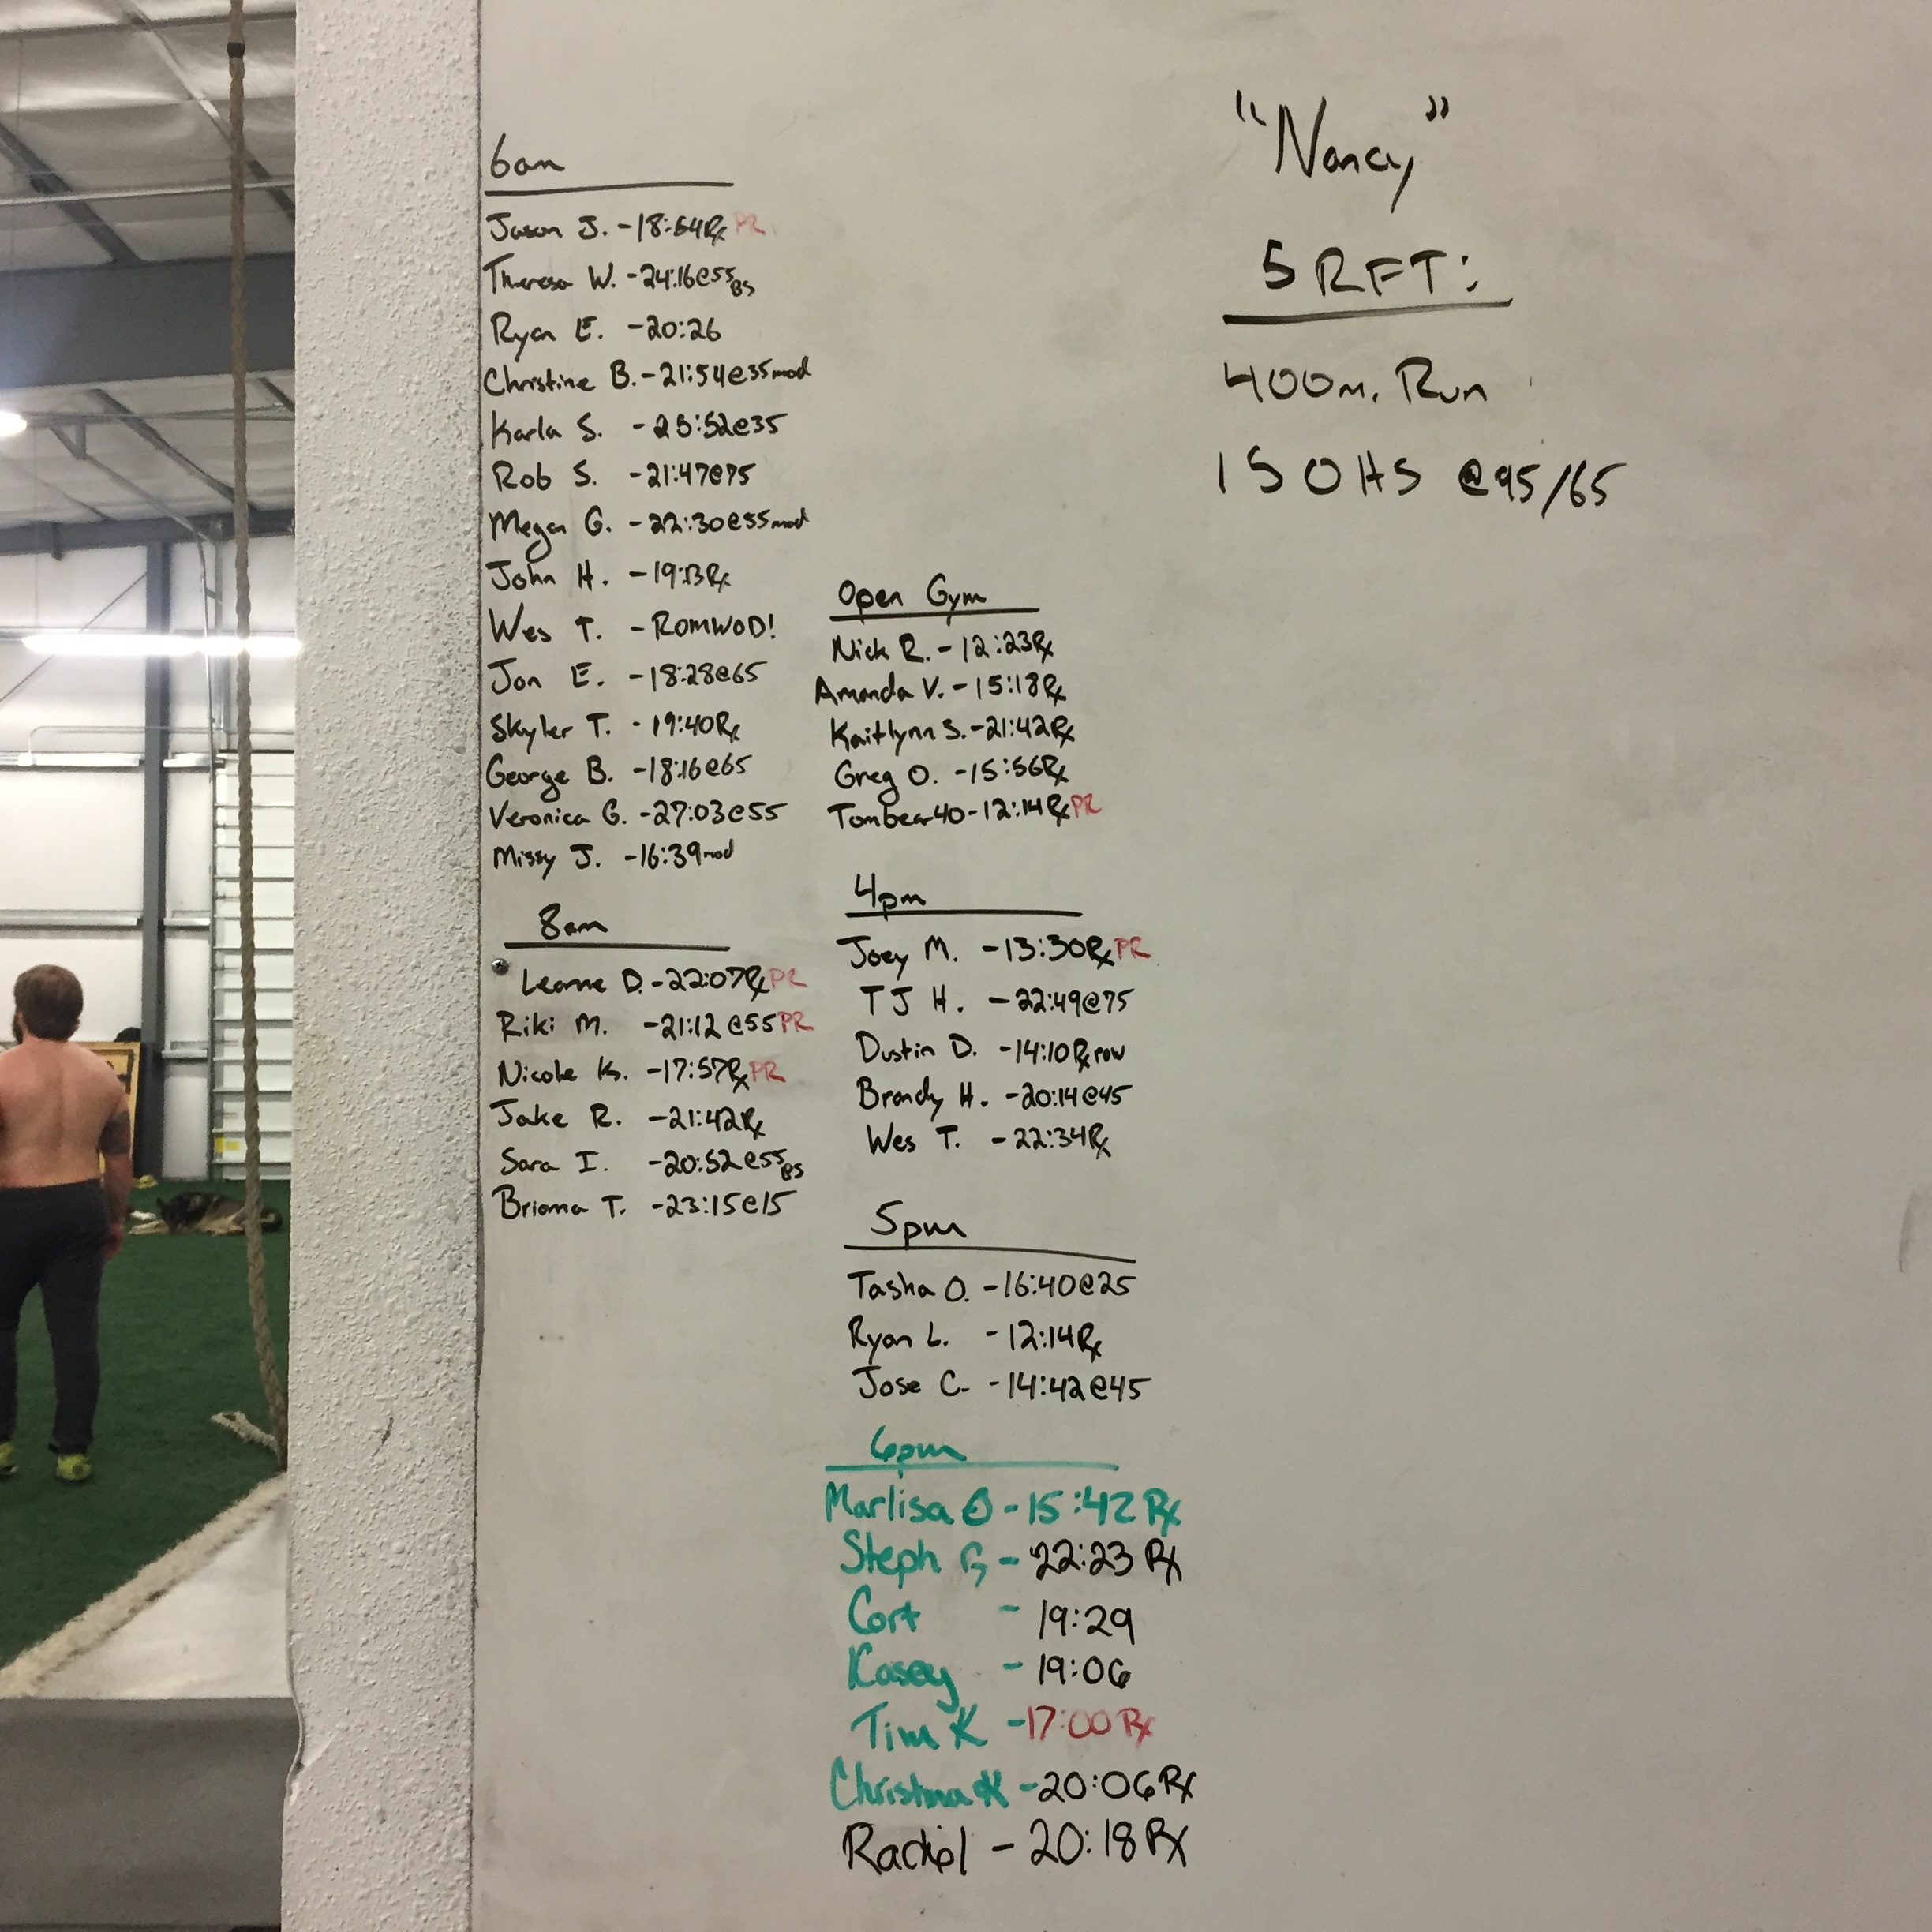 "Nancy"
5 RFT:
400m. Run
15 OHS @95/65
6am
Jason J. -18:54Rx PR
Theresa W. -24:16@55 BS
Ryan E. -20:26
Christine B. -21:54@35mod
Karla S. -25:52@35
Rob S. -21:47@75
Megan G. -22:30@55mod
John H. -19:13Rx
Wes T. -ROMWOD!
Jon E. -18:28@65
Skyler T. - 19:40Rx
George B. -18:16@65
Veronica G. -27:03@55
Missy J. -16:39mod
8am
Leanne D. -22:07Rx PR
Riki M. -21:12 @55 PR
Nicole K. -17:57Rx PR
Jake R. -21:42Rx
Sara I. -20:52@55 BS
Briana T. -23:15@15
Open Gym
Nick R. -12:23Rx
Amanda V. -15:18Rx
Kaitlynn S. -21:42Rx
Greg O. -15:56Rx
Tombear40 -12:14Rx PR
4pm
Joey M. -13:30Rx PR
TJ H. -22:49@75
Dustin D. -14:10Rx row
Brandy H. -20:14@45
Wes T. -22:34Rx
5pm
Tasha O. -16:40@25
Ryan L. -12:14Rx
Jose C. -14:42@45
6pm
Marlisa O -15:42 Rx
Steph - 22:23 Rx
Cort - 19:29
Kasey - 19:06
Tim K -17:00 Rx
Christina K -20:06Rx
Rachel - 20:18 Rx